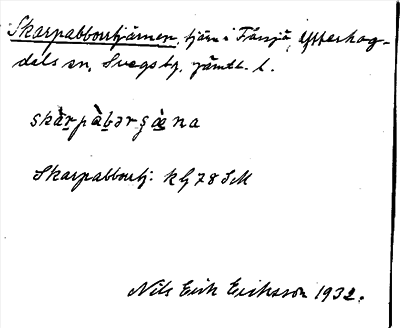 Skarpabborrtjärnen, tjärn i Fåssjö, Ytterhog-
dals sn, Svegs tg, Jämtl. l.
skàrpàbərʂæ̀na
Skarpabborrtj. kbl 78 SM
Nils Erik Eriksson 1932.